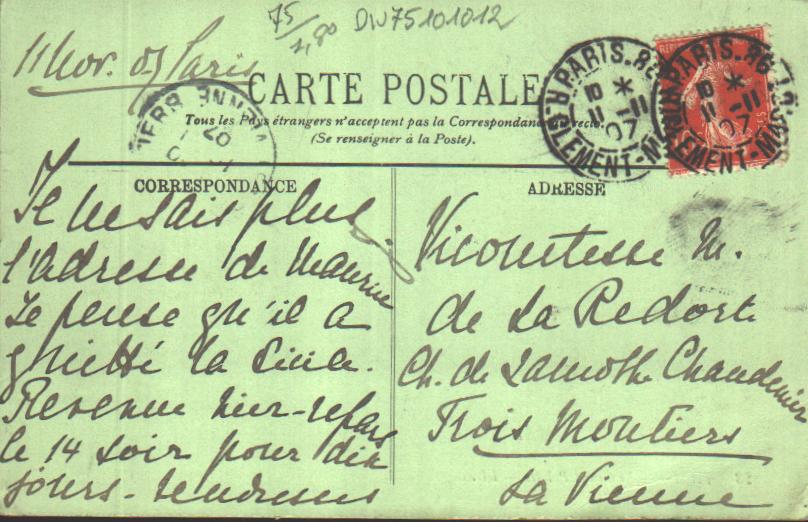 75
1,80 DW75101012
11 Nov. 07 Paris
CARTE POSTALE
Tous les Pays étrangers n'acceptent pas la Correspondance au recto.
(Se renseigner à la Poste).
PARIS. 86
10 *
11 -11
07
CLEMENT-MAROT
PARIS. 86
10 *
11 -11
07
CLEMENT-MAROT
VIENNE
07
CORRESPONDANCE
Je ne sais plus
l'adresse de Maurice
Je pense qu'il a
quitté la Sicile.
Revenue hier - repars
le 14 soir pour dix
jours - tendresses
ADRESSE
Vicomtesse M.
de La Redorte
Ch. de Lamothe Chandenier
Trois Moutiers
La Vienne